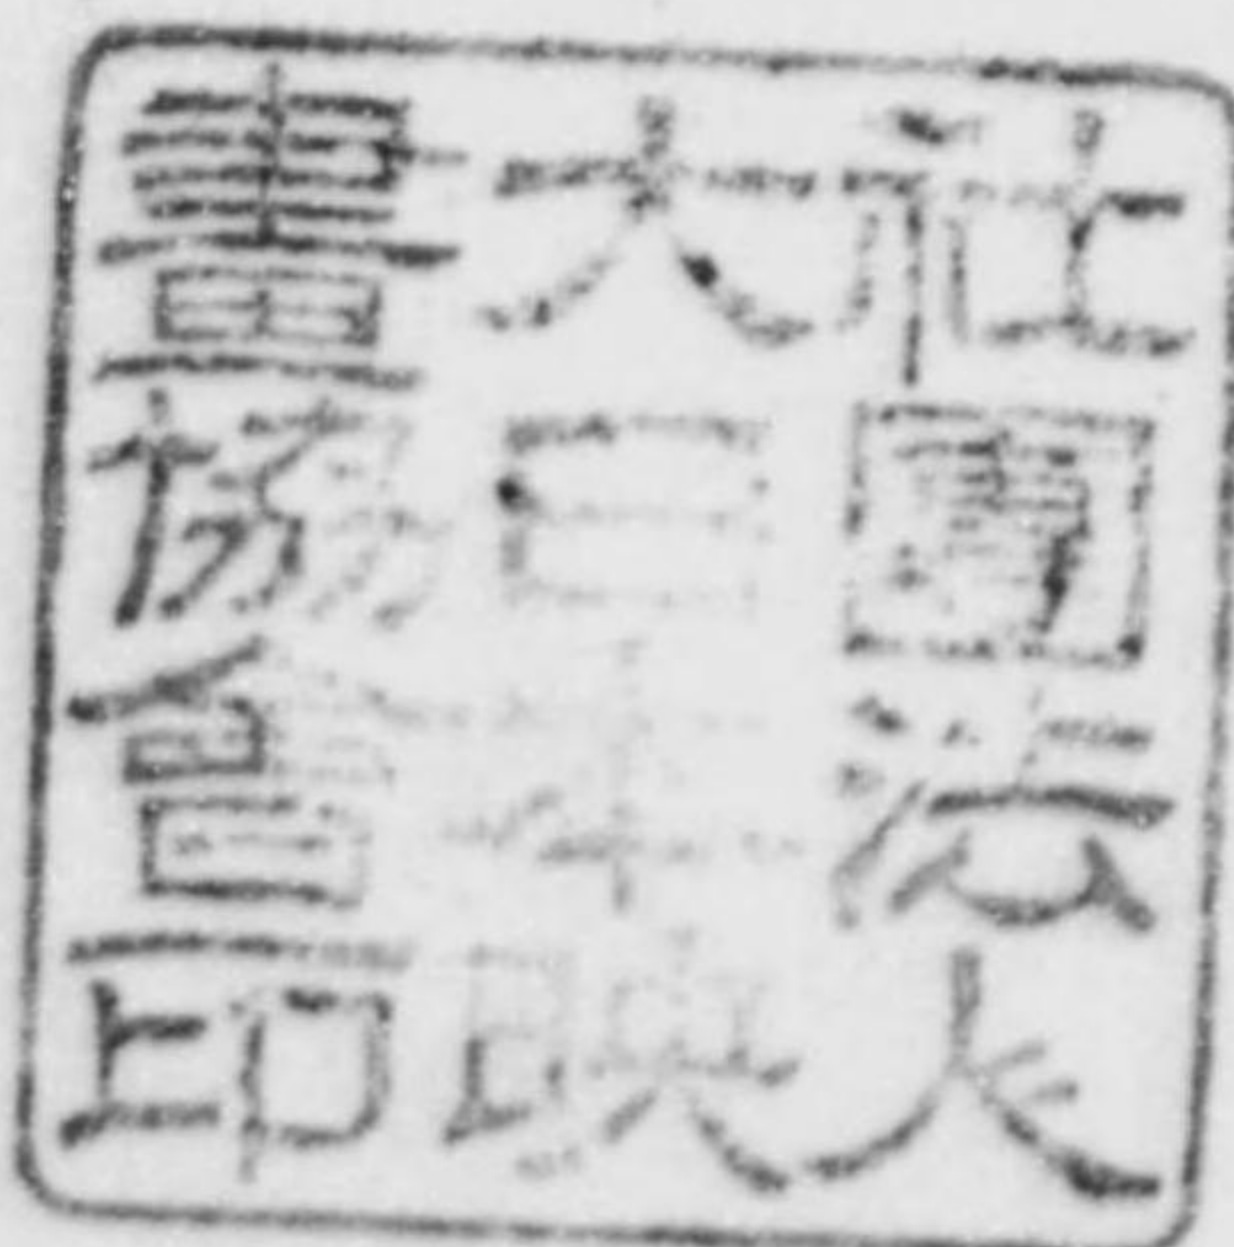 社團法人
大日本映
畫協會印